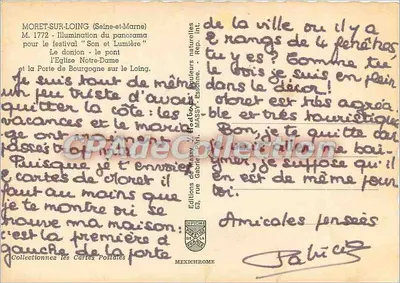 MORET-SUR-LOING (Seine-et-Marne)
M. 1772 - Illumination du panorama
pour le festival "Son et Lumière"
Le donjon - le pont
l'Eglise Notre-Dame
et la Porte de Bourgogne sur le Loing.
Je suis tout de même
un peu triste d'avoi
quitter la côte: les
vacances et le maria-
ge ont
passés
Puisque je t'envoie
2 cartes de Moret il
faut au moins que
je te montre où se
trouve ma maison:
c'est la première à
gauche de la porte
Collectionnez les Cartes Postales
Editions de
63, rue
couleurs naturelles
MASSY-Essonne - Rep. Int.
MEXICHROME
de la ville où il y a
2 rangs de 4 fenêtres
tu y es? Comme tu
le vois je suis en plein
dans le décor!
Moret est très agréa-
ble et très touristique
Bon, je te quitte
bai-
gner, je suppose qu'il
en est de même pour
toi.
Amicales pensées
Patricia
CPADeCollection.com